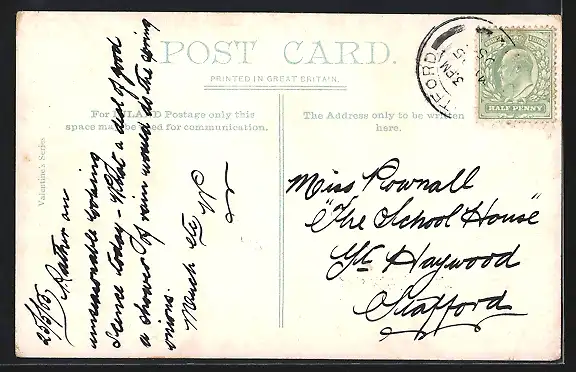 POST CARD.
PRINTED IN GREAT BRITAIN.
For INLAND Postage only this
space may be used for communication.
The Address only to be written
here.
Valentine's Series
TFORD
3 PM
HALF PENNY
Miss Pownall
"The School House"
Gt Haywood
Stafford
Rather an
unseasonable
Scene today - What a deal of good
a shower of rain would do the spring
onions.
Much